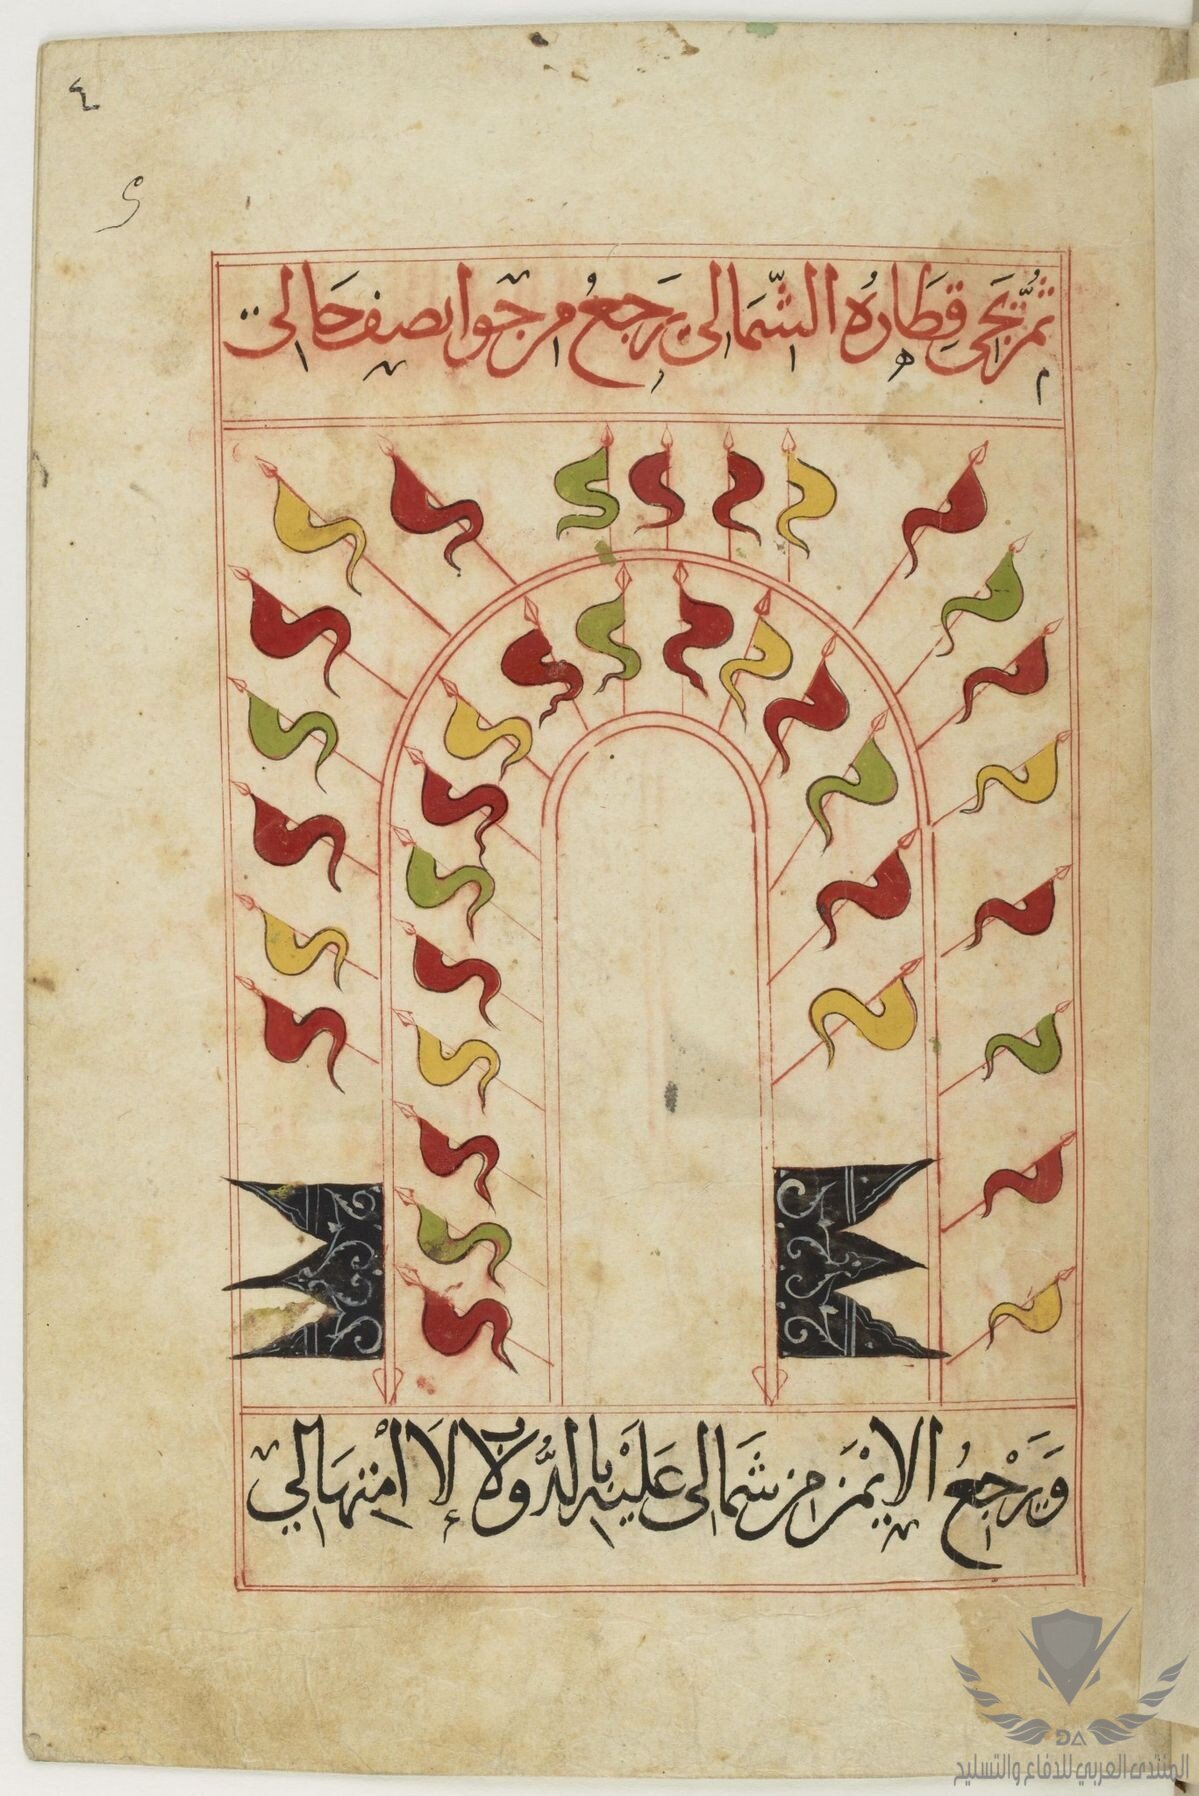 ٤
ثُمَّ تَجِى قِطَارُهُ الشِّمَالِى يَرْجَعُ مِن جَوَّا بصف حَالى
وَيَرْجَعُ الايْمَن مِن شَمَالى عَلَيْه بالدُّولاب إلَا امْنتهَالي
المنتدى العربي للدفاع والتسليح